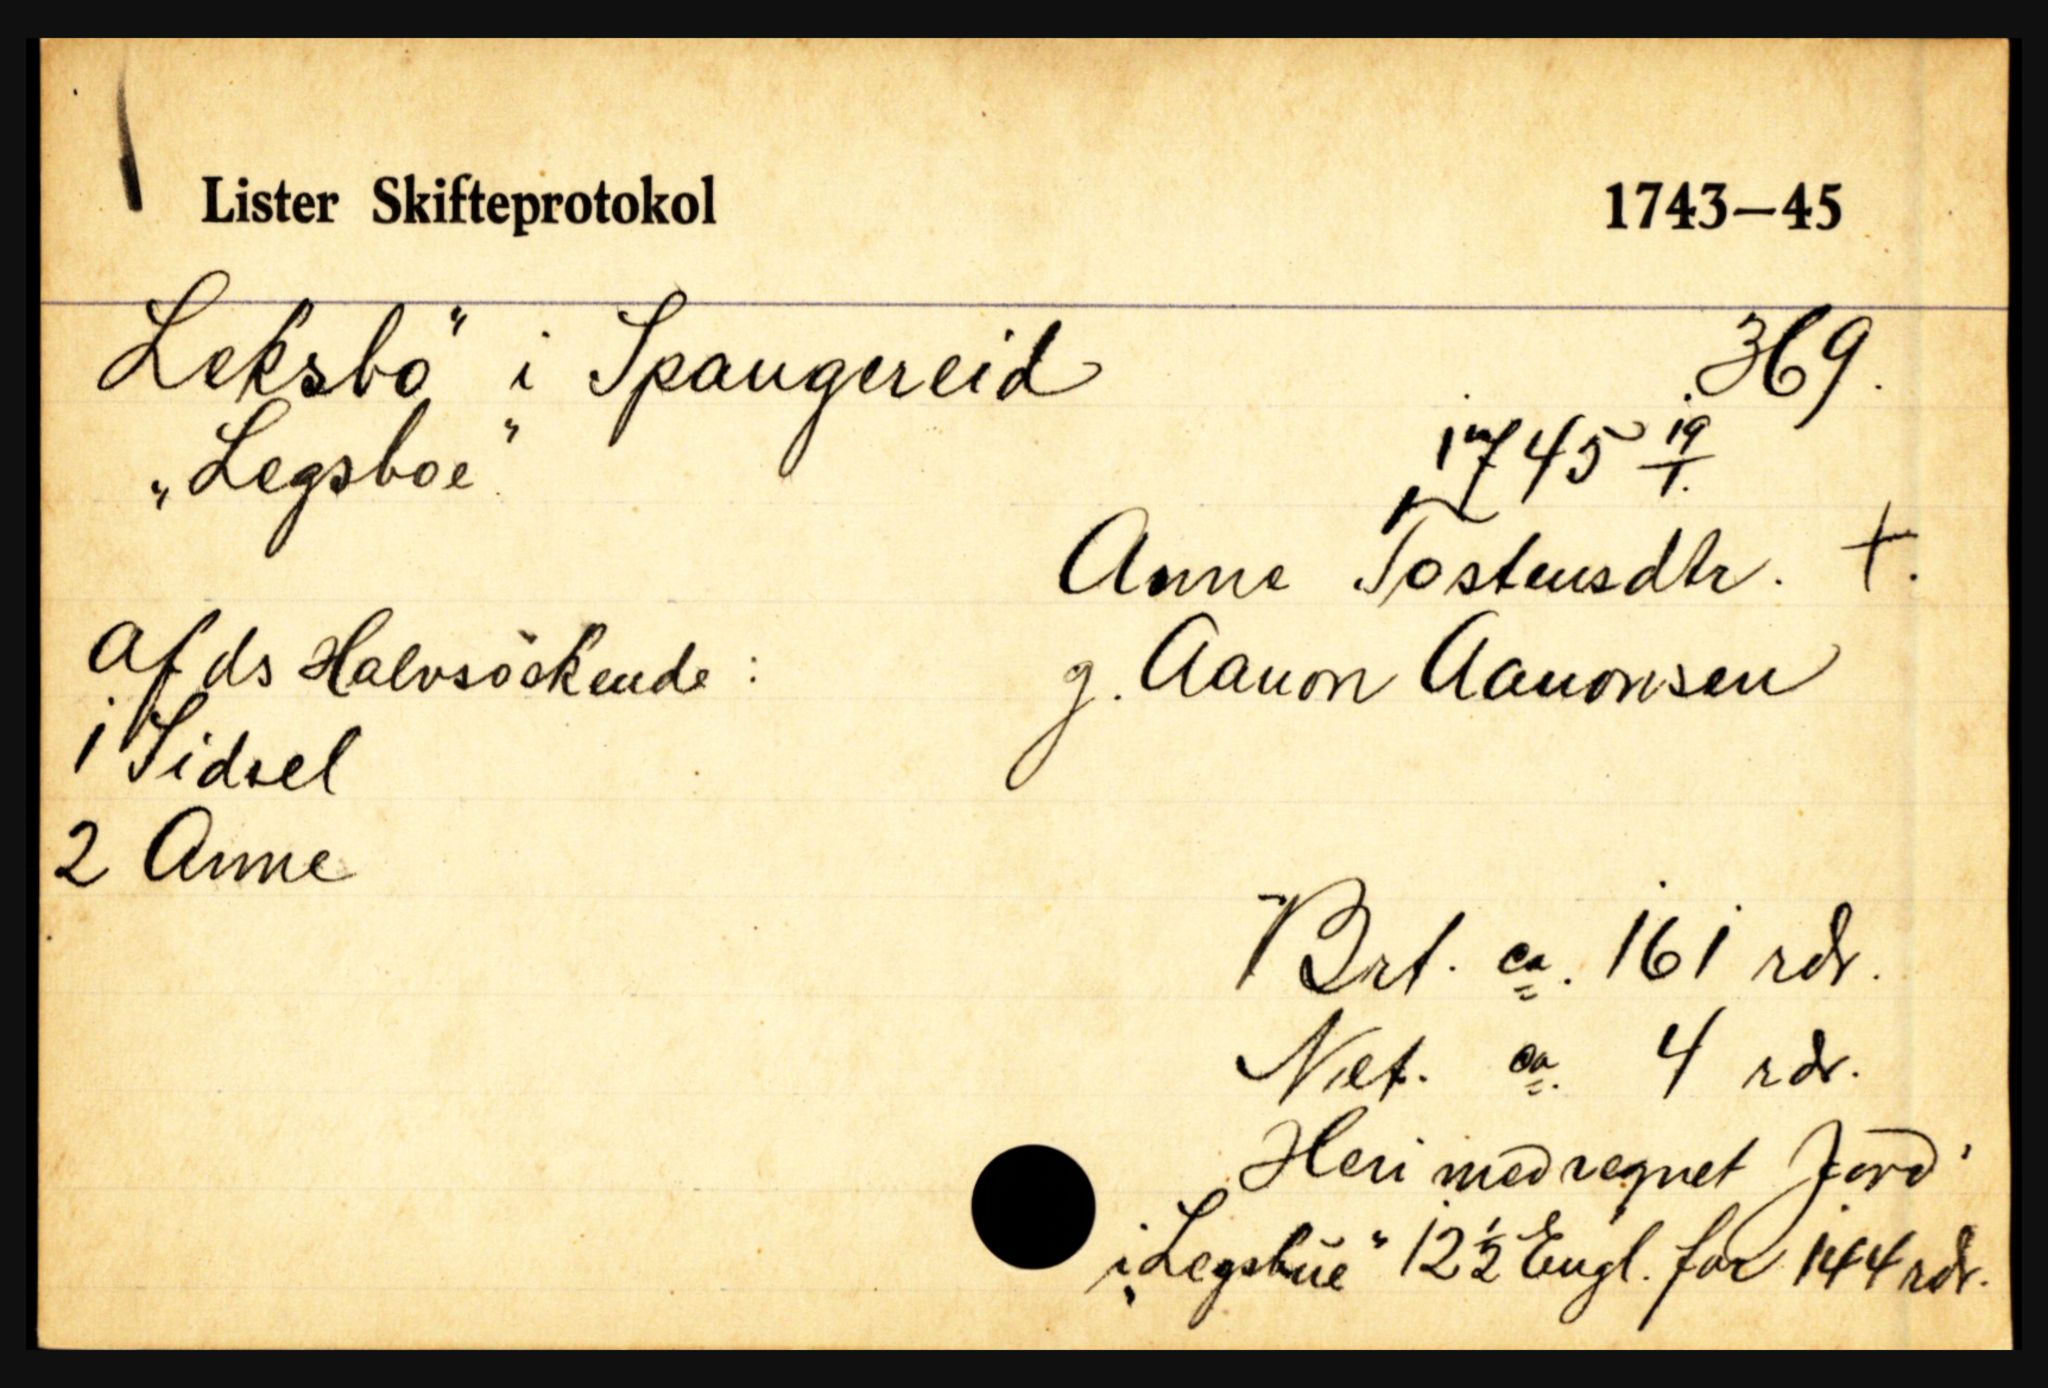 Lister Skifteprotokol 1743—45
Leksbö" i Spangereid 369.
„Legsboe" 1745 19/1.
Anne Tostensdtr. +.
Afds Halvsöskende : g. Aanon Aanonsen
1 Sidsel
2 Anne
Brt. ca. 161 rdr.
Net. ca. 4 rdr.
Heri medregnet Jord
i „Legsbue" 12 1/2 Engl. for 144 rdr.